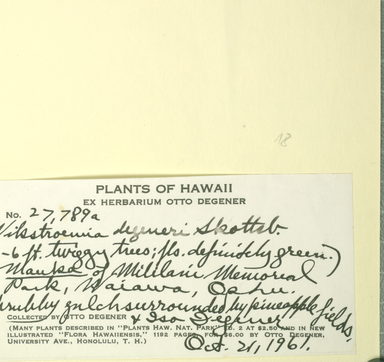 18
PLANTS OF HAWAII
EX HERBARIUM OTTO DEGENER
No. 27,789a
Wikstroemia degeneri Skottsb.
-6 ft. twiggy trees; fls. definitely green.)
Mauka of Mililani Memorial
Park, Waiawa, Oahu.
shrubby gulch surrounded by pineapple fields.
COLLECTED BY OTTO DEGENER & Isa Degener
(MANY PLANTS DESCRIBED IN "PLANTS HAW. NAT. PARK" ED. 2 AT $2.50 AND IN NEW
ILLUSTRATED "FLORA HAWAIIENSIS," 1192 PAGES, FOR $6.00 BY OTTO DEGENER,
UNIVERSITY AVE., HONOLULU, T. H.)
Oct. 21, 1961.